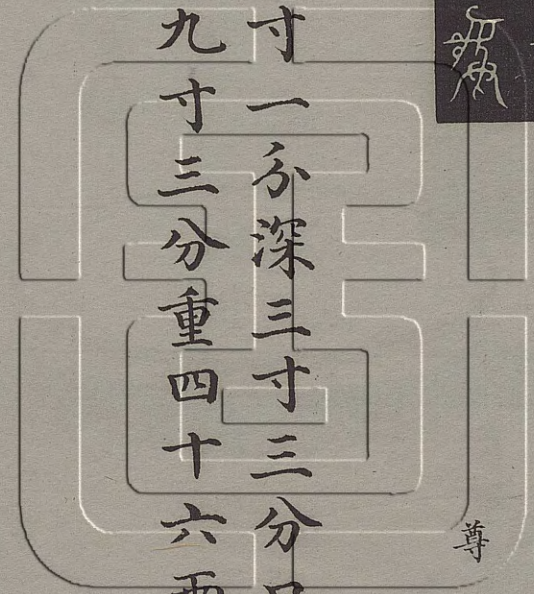 尊
寸一分深三寸三分
九寸三分重四十六兩